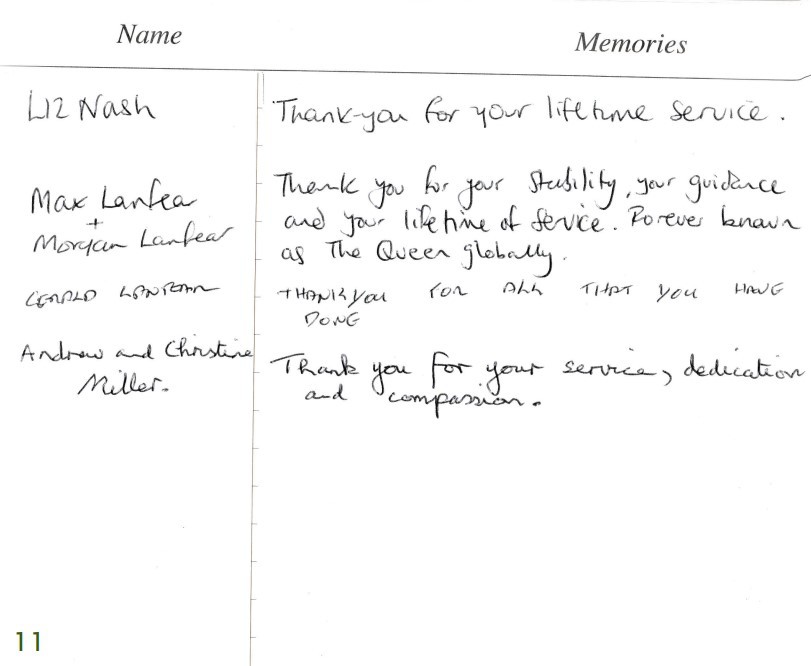 Name Memories
Liz Nash Thank-you for your lifetime service.
Max Lanfear Thank you for your stability, your guidance
+ and your lifetime of service. Forever known
Morgan Lanfear as The Queen globally.
GERALD LANFEAR THANK YOU FOR ALL THAT YOU HAVE
DONE
Andrew and Christine Thank you for your service, dedication
Miller. and compassion.
11